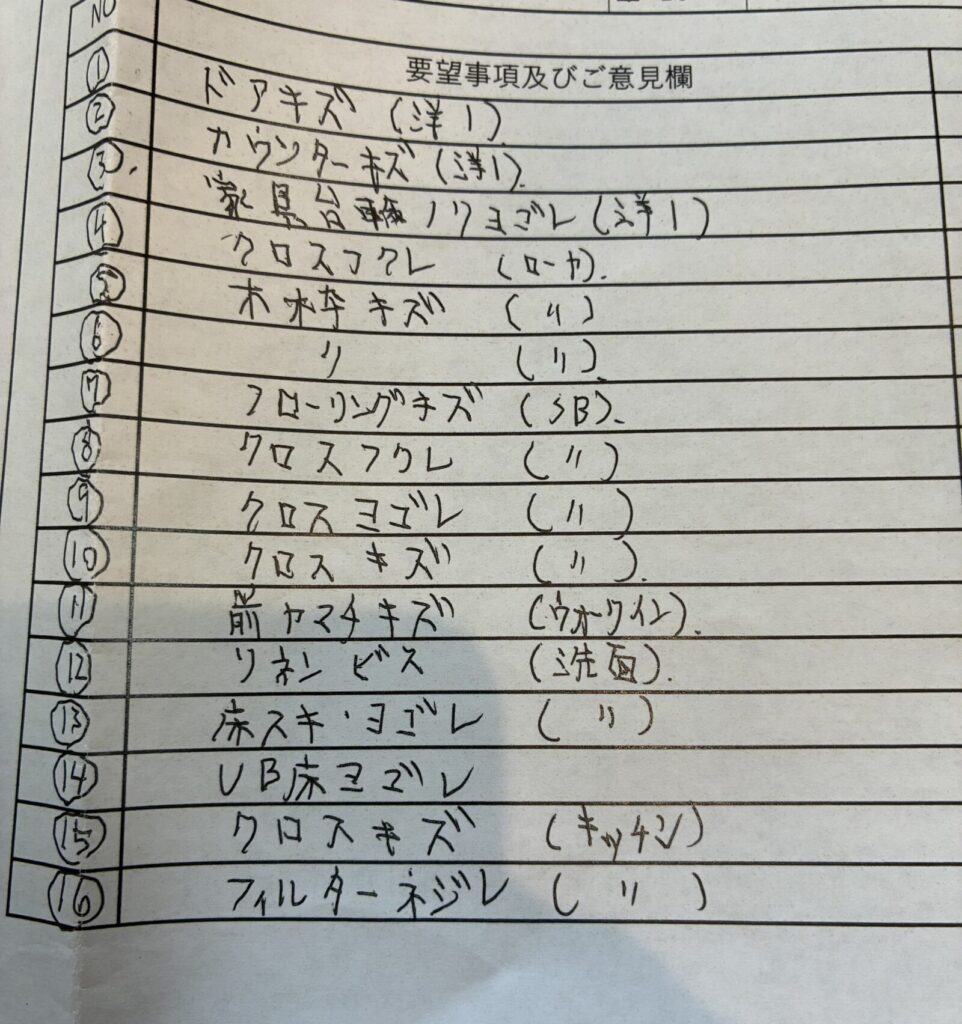 NO
要望事項及びご意見欄
① ドアキズ (洋1)
② カウンターキズ (洋1).
③. 家具台輪ノリヨゴレ (洋1)
④ クロスフクレ (ローカ).
⑤ 木枠キズ (〃)
⑥ 〃 (〃).
⑦ フローリングキズ (SB).
⑧ クロスフクレ (〃)
⑨ クロスヨゴレ (〃)
⑩ クロスキズ (〃).
⑪ 前ヤマチキズ (ウォークイン).
⑫ リネンビス (洗面).
⑬ 床スキ・ヨゴレ (〃)
⑭ UB床ヨゴレ
⑮ クロスキズ (キッチン)
⑯ フィルターネジレ (〃)